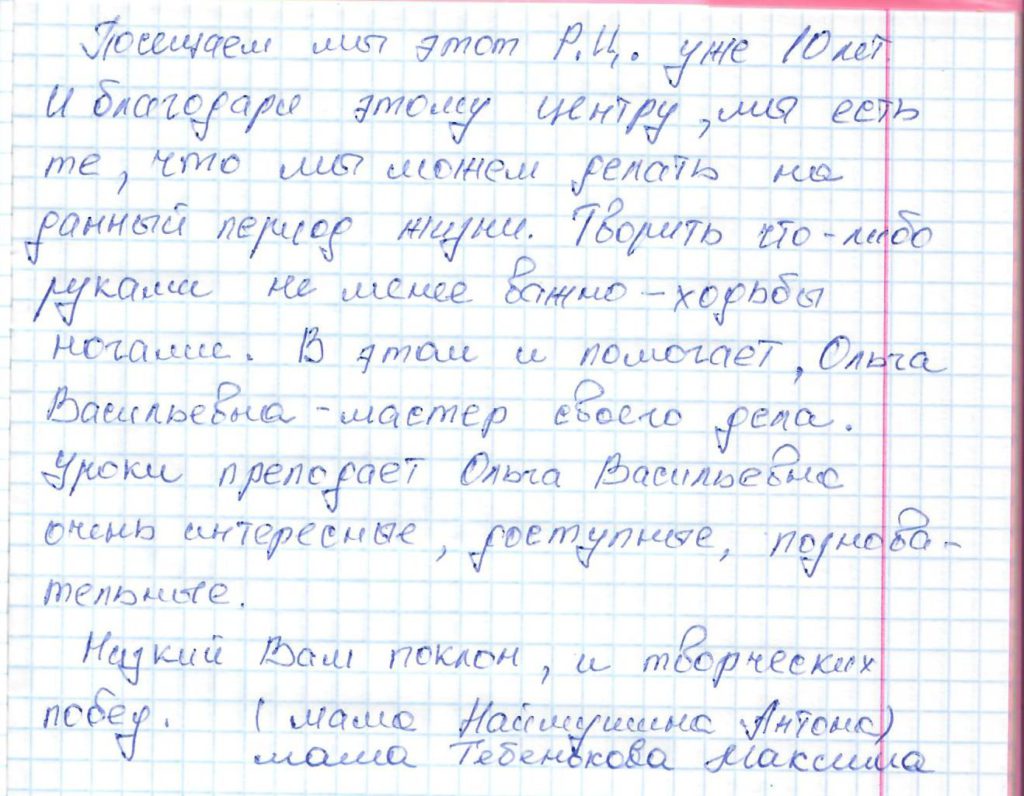 Посещаем мы этот Р.Ц. уже 10 лет.
И благодаря этому центру, мы есть
те, что мы можем делать на
данный период жизни. Творить что-либо
руками не менее важно - ходьбы
ногами. В этом и помогает, Ольга
Васильевна - мастер своего дела.
Уроки преподает Ольга Васильевна
очень интересные, доступные, познова-
тельные.
Низкий Вам поклон, и творческих
побед. (мама Наймушина Антона)
мама Тебенькова Максима